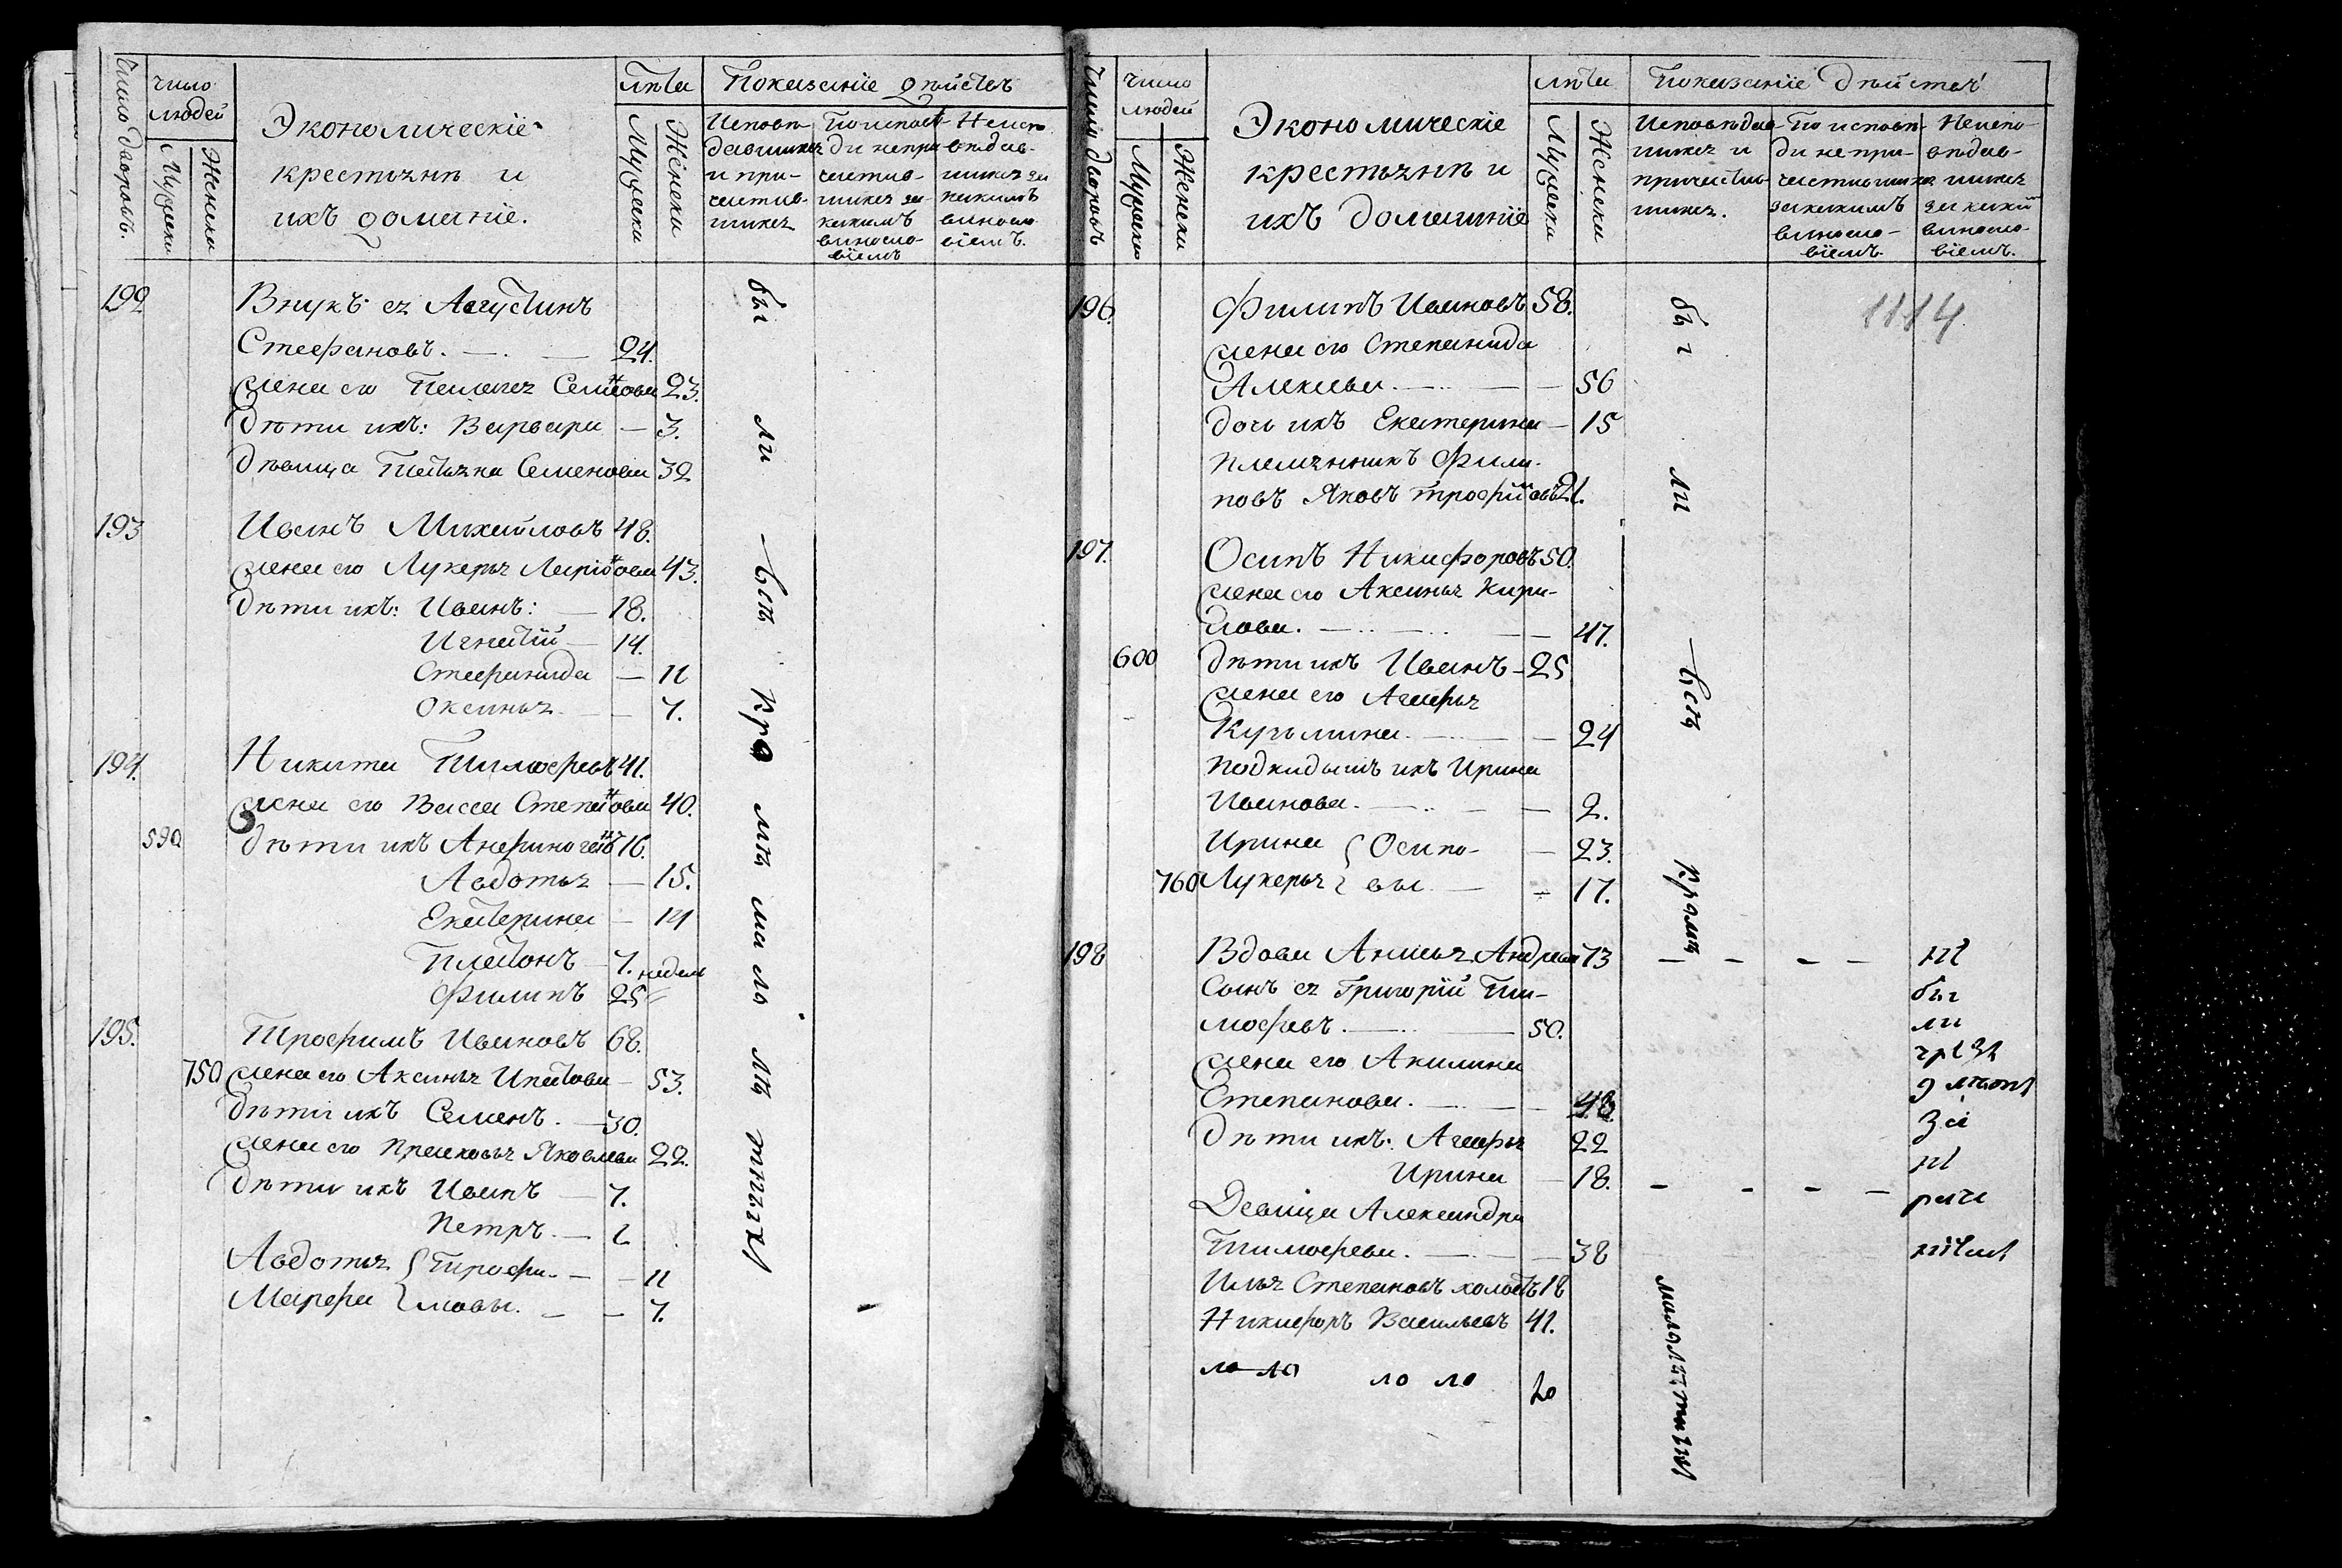 Число дворовъ.
число людей
Мужеска
Женска
Экономическіе
крестьянѣ и
ихъ домашніе.
лѣта
Мужеска
Женска
Показаніе дѣйств
Исповѣ-
давшихся
и при-
частив-
шихся
По исповѣ-
ди не при-
частив-
шихся за
какимъ
винсло-
віемъ
Неиспо-
вѣдав-
шихся за
какимъ
винсло-
віемъ.
192
Внукъ ея Августинъ
Стефановъ. 24.
жена его Пелагея Семенова 23.
дѣти ихъ: Варвара 3.
дѣвица Татьяна Семенова 32
193
Иванъ Михайловъ 48.
жена его Лукерья Ларіонова 43.
дѣти ихъ: Иванъ: 18.
Игнатій 14.
Стефанида 11
Оксинья 7.
194.
Никита Тимофеевъ 41.
жена его Васса Степанова 40.
590 дѣти ихъ Анфиногенъ 16.
Авдотья 15.
Екатерина 14
Платонъ 7. недель
Филипъ 25
195.
Трофимъ Ивановъ 68.
750 жена его Аксинья Ипатова 53.
дѣти ихъ Семенъ. 30.
жена его Прасковья Яковлева 22.
дѣти ихъ Иванъ 7.
Петръ. 2
Авдотья } Трофи- 11
Марфа } мовы. 7.
бы
ли
всѣ
кро
мѣ
ма
ло
лѣ
тных
Число дворовъ
число людей
Мужеска
Женска
Экономическіе
крестьянѣ и
ихъ домашніе
лѣта
Мужеска
Женска
Показаніе дѣйств
Исповѣдав-
шихся и
причастив-
шихся.
По исповѣ-
ди не при-
частившихся
за какимъ
винсло-
віемъ.
Неиспо-
вѣдав-
шихся
за каким
винсло-
віемъ.
1114
196.
Филипъ Ивановъ 58.
жена его Степанида
Алексеева. 56
дочь ихъ Екатерина 15
племянникъ Фили-
повъ Яковъ Трофимовъ 21.
197.
Осипъ Никифоровъ 50.
жена его Аксинья Кири-
лова. 47.
600 дѣти ихъ Иванъ 25
жена его Агафья
Кузьмина. 24
подкидышъ ихъ Ирина
Иванова. 2.
Ирина } Осипо- 23.
760 Лукерья } вы. 17.
198
Вдова Анисья Андреева 73
Сынъ ея Григорій Ти-
мофеевъ. 50.
жена его Акилина
Степанова. 48.
дѣти ихъ: Агафья 22
Ирина 18.
Девица Александра
Тимофеева. 38
Илья Степановъ холостъ 18
Никифоръ Васильевъ 41.
бы
ли
всѣ
кромѣ
малолѣтных
не
бы
ли
чрез
9 лѣтъ
за
не
раче
ніем